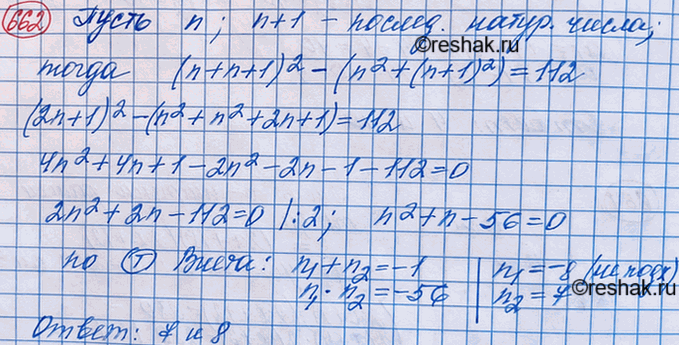 662 Пусть n; n+1 – послед. натур. числа;
©reshak.ru
тогда (n+n+1)² – (n²+(n+1)²) = 112
(2n+1)² – (n²+n²+2n+1) = 112
4n²+4n+1–2n²–2n–1–112=0
2n²+2n–112=0 |:2; n²+n–56=0
по Т Виета: n₁+n₂=–1 | n₁=–8 (не подх)
n₁·n₂=–56 | n₂=7
©reshak.ru
Ответ: 7 и 8